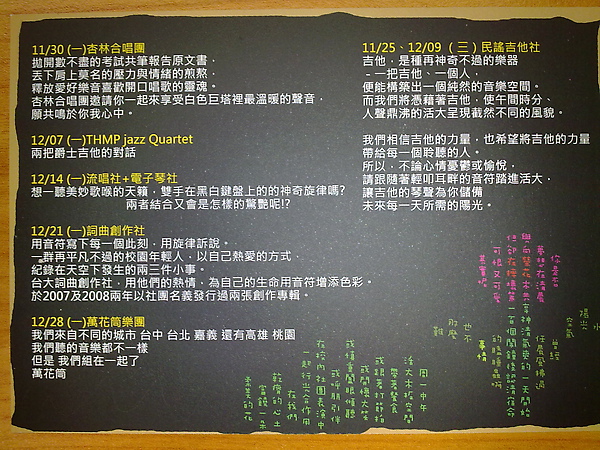 11/30 (一)杏林合唱團
拋開數不盡的考試共筆報告原文書，
丟下肩上莫名的壓力與情緒的煎熬，
釋放愛好樂音喜歡開口唱歌的靈魂。
杏林合唱團邀請你一起來享受白色巨塔裡最溫暖的聲音，
願共鳴於你我心中。
12/07 (一)THMP jazz Quartet
兩把爵士吉他的對話
12/14 (一)流唱社+電子琴社
想一聽美妙歌喉的天籟，雙手在黑白鍵盤上的的神奇旋律嗎?
兩者結合又會是怎樣的驚艷呢!?
12/21 (一)詞曲創作社
用音符寫下每一個此刻，用旋律訴說。
一群再平凡不過的校園年輕人，以自己熱愛的方式，
紀錄在天空下發生的兩三件小事。
台大詞曲創作社，用他們的熱情，為自己的生命用音符增添色彩。
於2007及2008兩年以社團名義發行過兩張創作專輯。
12/28 (一)萬花筒樂團
我們來自不同的城市 台中 台北 嘉義 還有高雄 桃園
我們聽的音樂都不一樣
但是 我們組在一起了
萬花筒
11/25、12/09 （三）民謠吉他社
吉他，是種再神奇不過的樂器
－一把吉他、一個人，
便能構築出一個純然的音樂空間。
而我們將憑藉著吉他，使午間時分、
人聲鼎沸的活大呈現截然不同的風貌。
我們相信吉他的力量，也希望將吉他的力量
帶給每一個聆聽的人。
所以，不論心情憂鬱或愉悅，
請跟隨著輕叩耳群的音符踏進活大，
讓吉他的琴聲為你儲備
未來每一天所需的陽光。
你是否
夢想在清晨
可恨又可愛
其實
也不
那麼
難
事情
周一中午
活大木板空間
帶著餐食
或跟著打節拍
或開懷大笑
或慎重閉眼傾聽
或呼朋引伴
在校內社團表演中
一起行光合作用
在我們
乾瘠的心土
當饒一朵
柔美的花